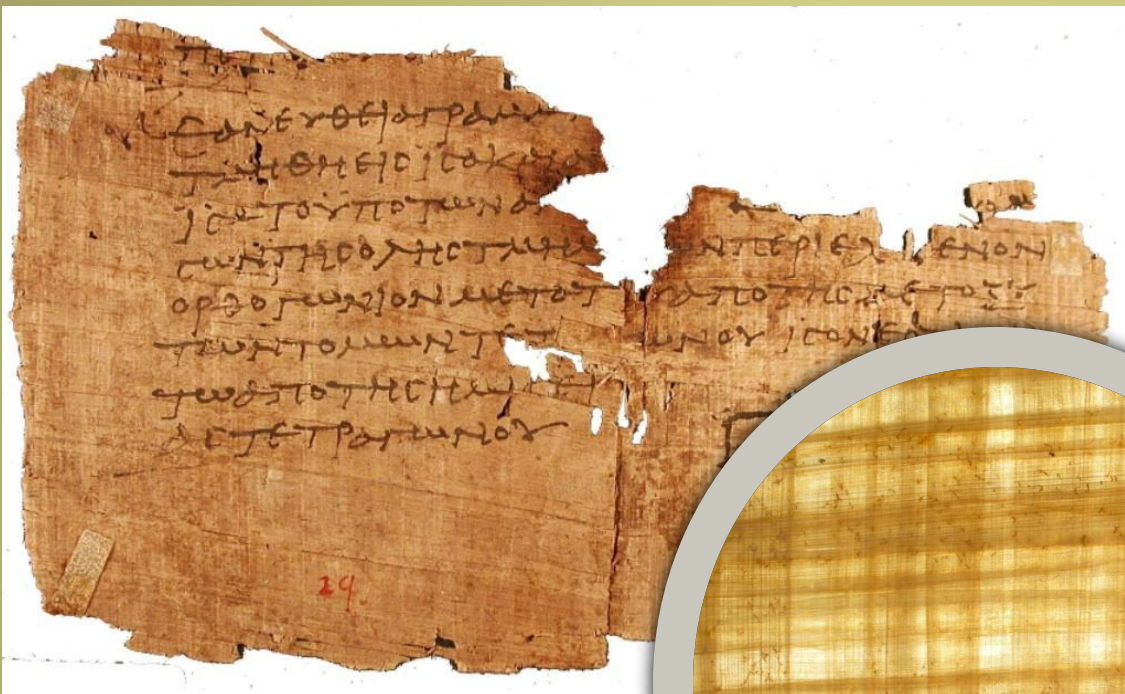 ΕΑΝΕΥΘΕΙΑΓΡΑΜΜ
ΤΜΗΘΗΕΙϹΙϹΑΚΑΙΑ
ΙϹΑΤΟΥΠΟΤΩΝΑ
ϹΩΝΤΗϹΟΛΗϹΤΜΗΜ ΩΝΠΕΡΙΕΧ ΜΕΝΟΝ
ΟΡΘΟΓΩΝΙΟΝΜΕΤΟΤ ΥΑΠΟΤΗϹΜΕΤΟΞΥ
ΤΩΝΤΟΜΩΝΤΕΤ ΩΝΟΥΙϹΟΝΕϹ
ΤΩΑΠΟΤΗϹΗΜΙϹΕΙ
ΑϹΤΕΤΡΑΓΩΝΟΥ
29